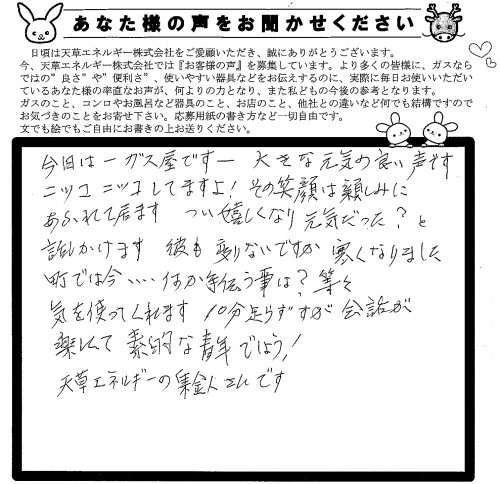 あなた様の声をお聞かせください
日頃は天草エネルギー株式会社をご愛顧いただき、誠にありがとうございます。
今、天草エネルギー株式会社では『お客様の声』を募集しています。より多くの皆様に、ガスなら
ではの”良さ”や”便利さ”、使いやすい器具などをお伝えするのに、実際に毎日お使いいただい
ているあなた様の率直なお声が、何よりの力となり、また私どもの今後の参考となります。
ガスのこと、コンロやお風呂など器具のこと、お店のこと、他社との違いなど何でも結構ですので
お気づきのことをお寄せ下さい。応募用紙の書き方など一切自由です。
文でも絵でもご自由にお書きの上お送りください。
今日はーガス屋ですー 大きな元気の良い声です
ニッコニッコしてますよ！その笑顔は親しみに
あふれて居ます つい嬉しくなり 元気だった？と
話しかけます 彼も 変りないですか 寒くなりました
町では今‥‥何か手伝う事は？等々
気を使ってくれます 10分足らずすが 会話が
楽しくて 素的な青年でしょう！
天草エネルギーの集金人さんです